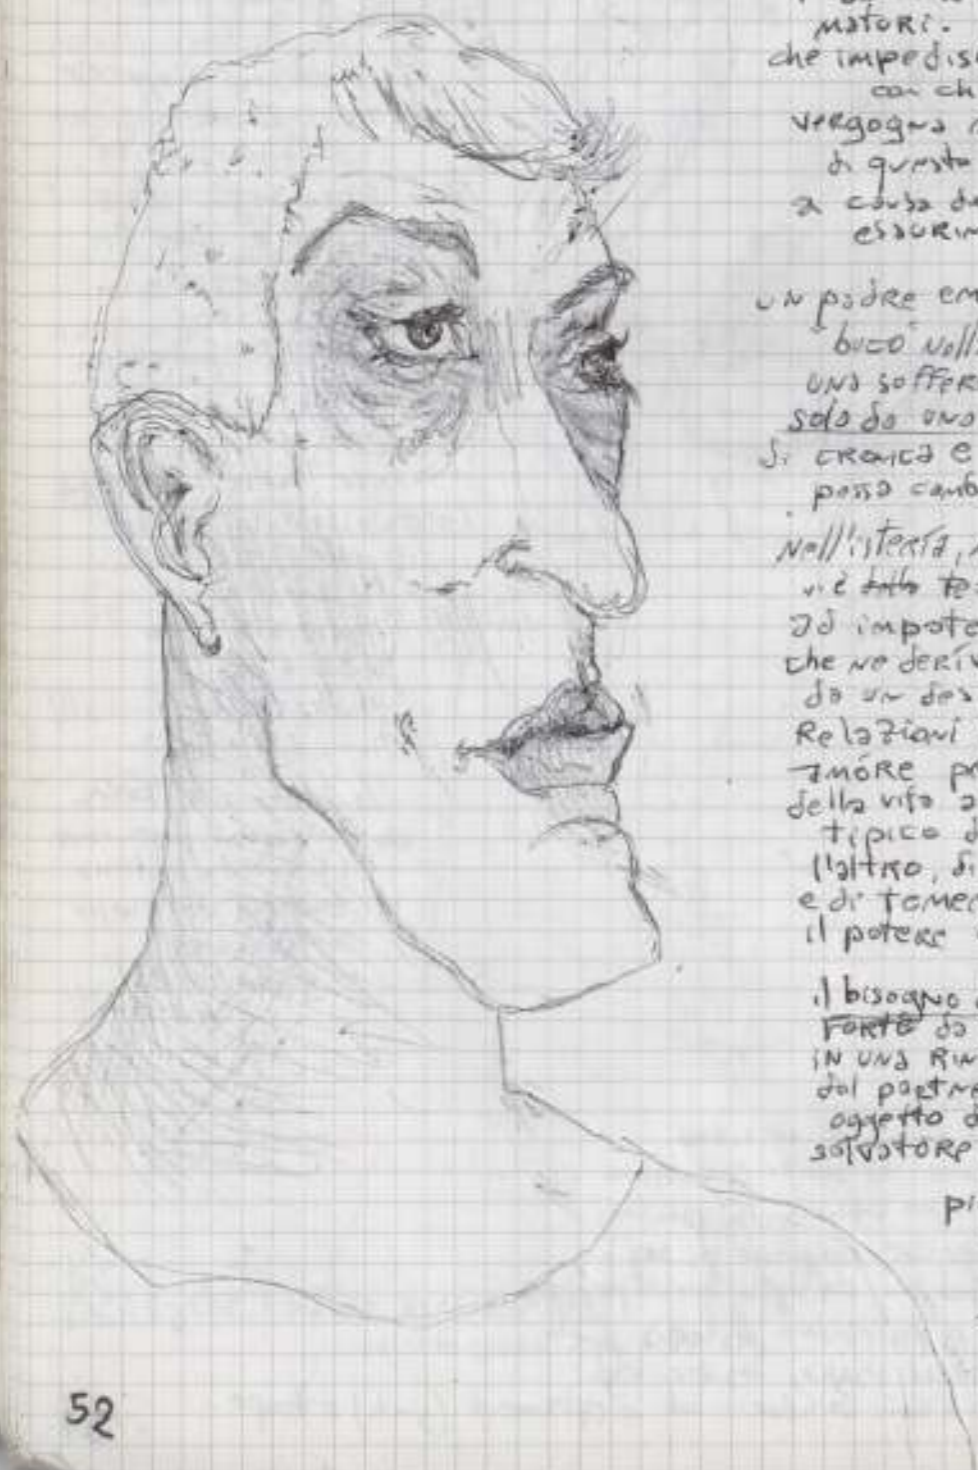 maturi.
che impedisc
con ch
vergogna
di questa
a causa de
esaurim
un padre em
buco nell
una soffer
sola da una
di cronica e
possa camb
nell'isteria,
vi è te
ad impote
che ne deriv
da un des
Relazioni
amore pr
della vita a
tipico d
l'altro, di
e di temer
il potere
il bisogno
forte da
in una rin
dal partne
oggetto d
salvatore
pi
52